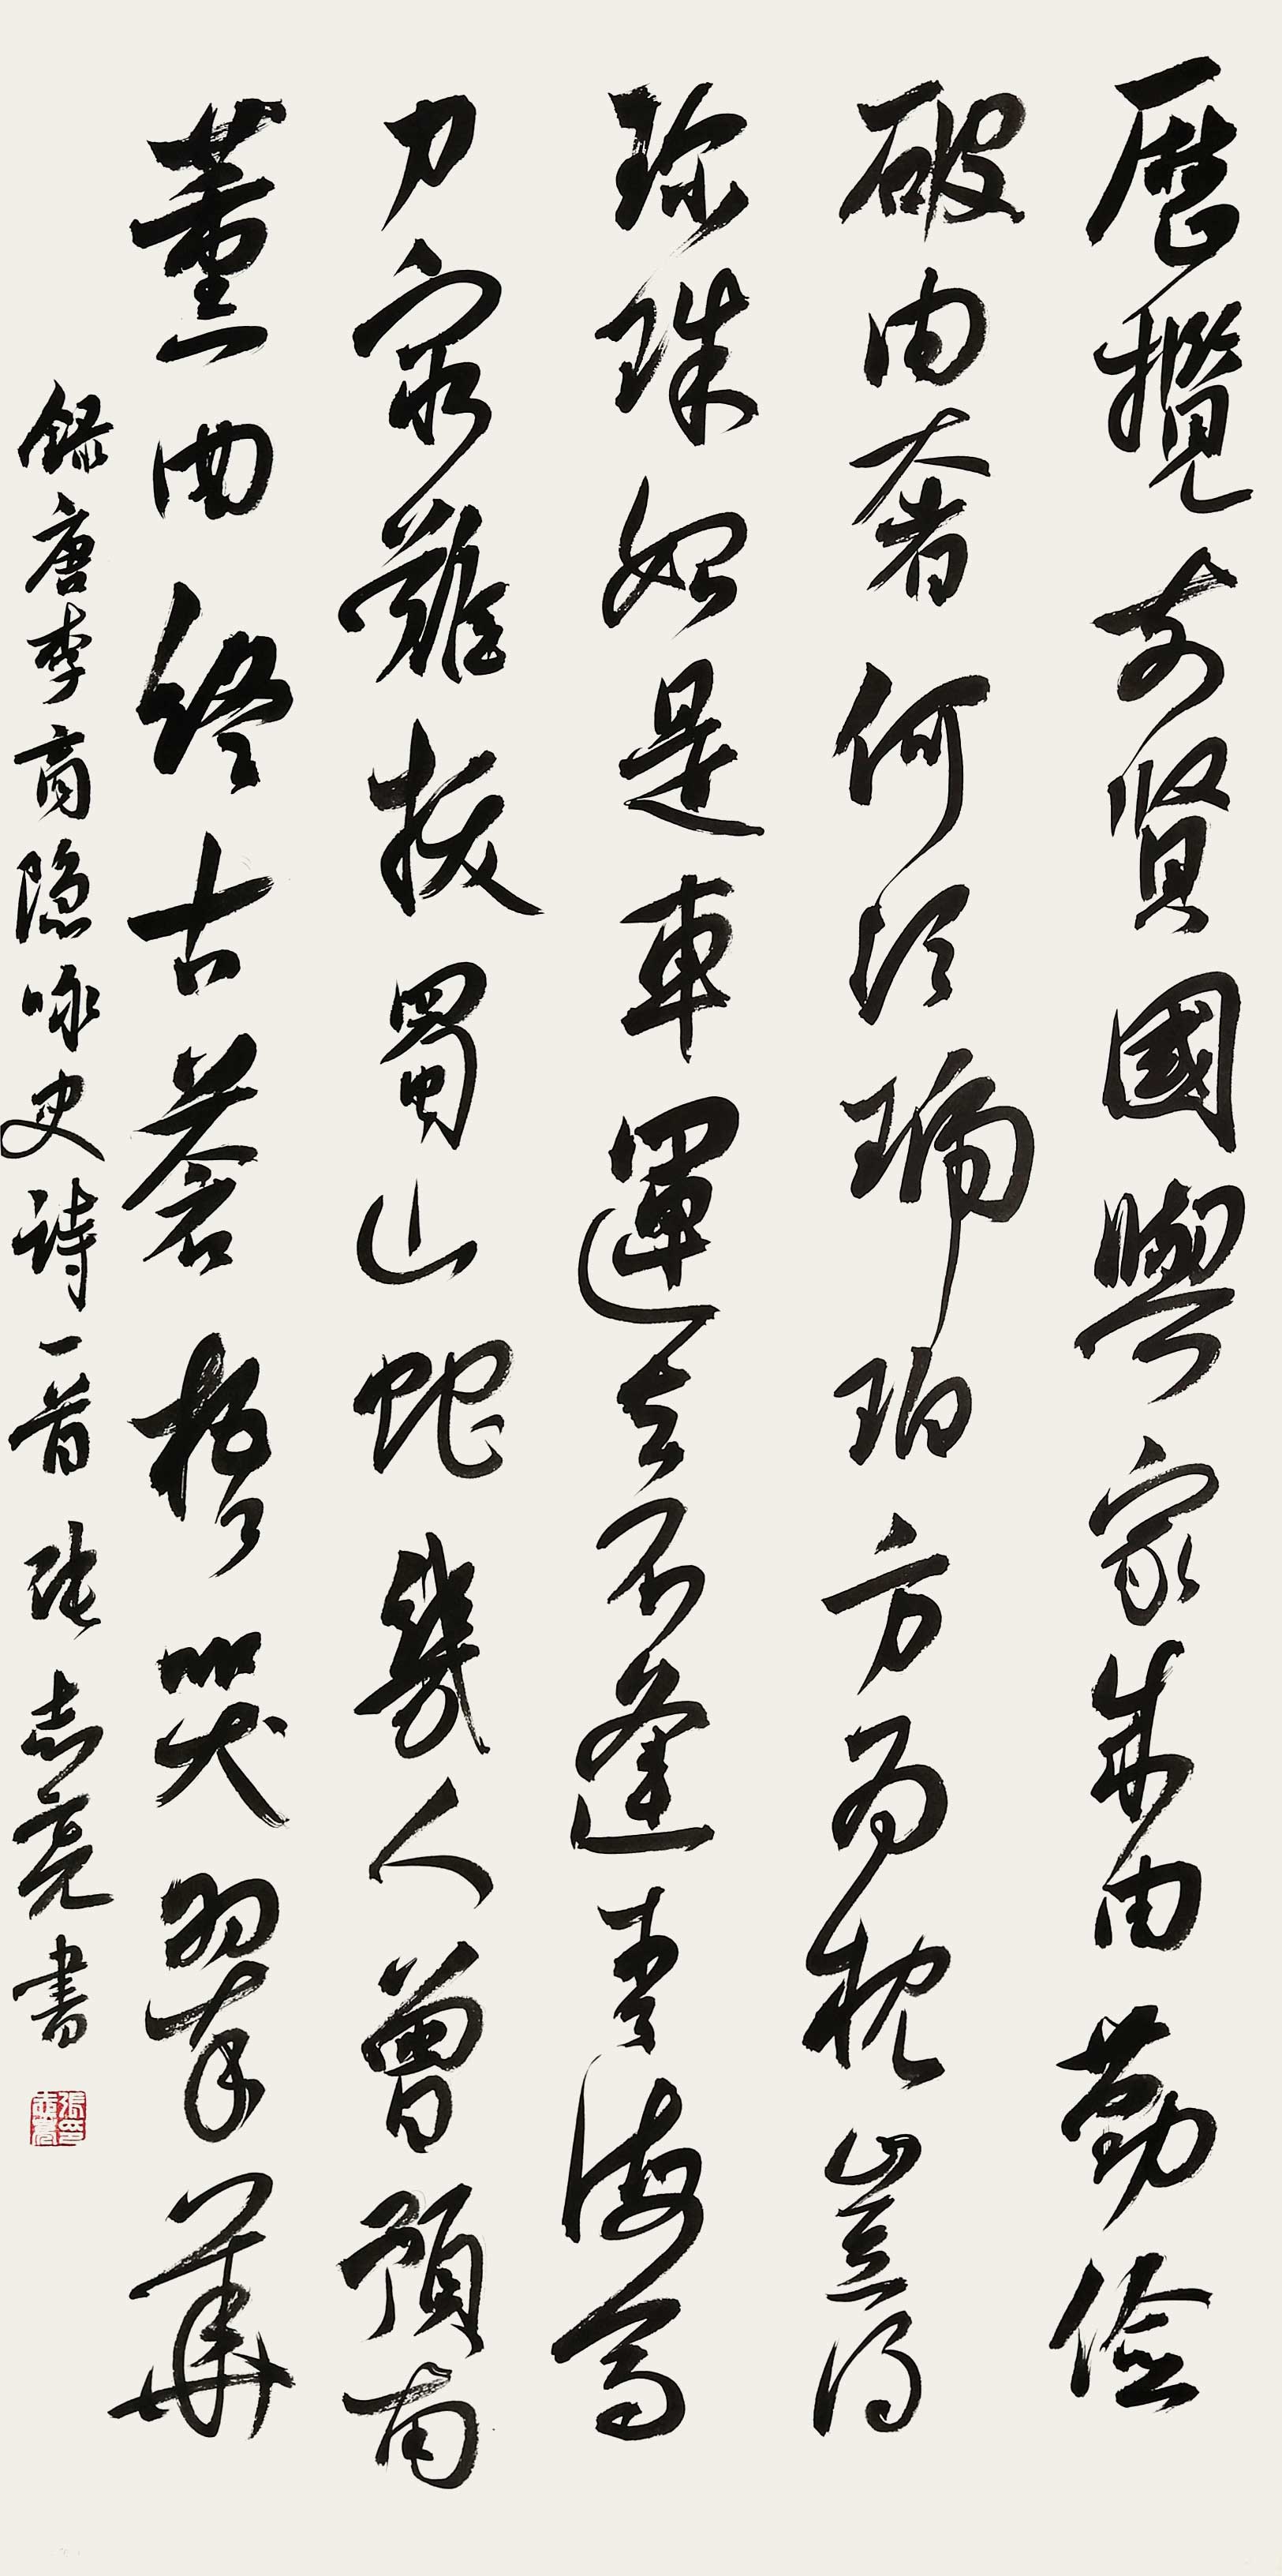 歷攬前賢國與家成由勤儉
破由奢何須琥珀方為枕豈得
珍珠始是車運去不逢青海馬
力窮難拔蜀山蛇幾人曾預南
薰曲終古蒼梧哭翠華
錄唐李商隱咏史詩一首張志亮書
張印志亮